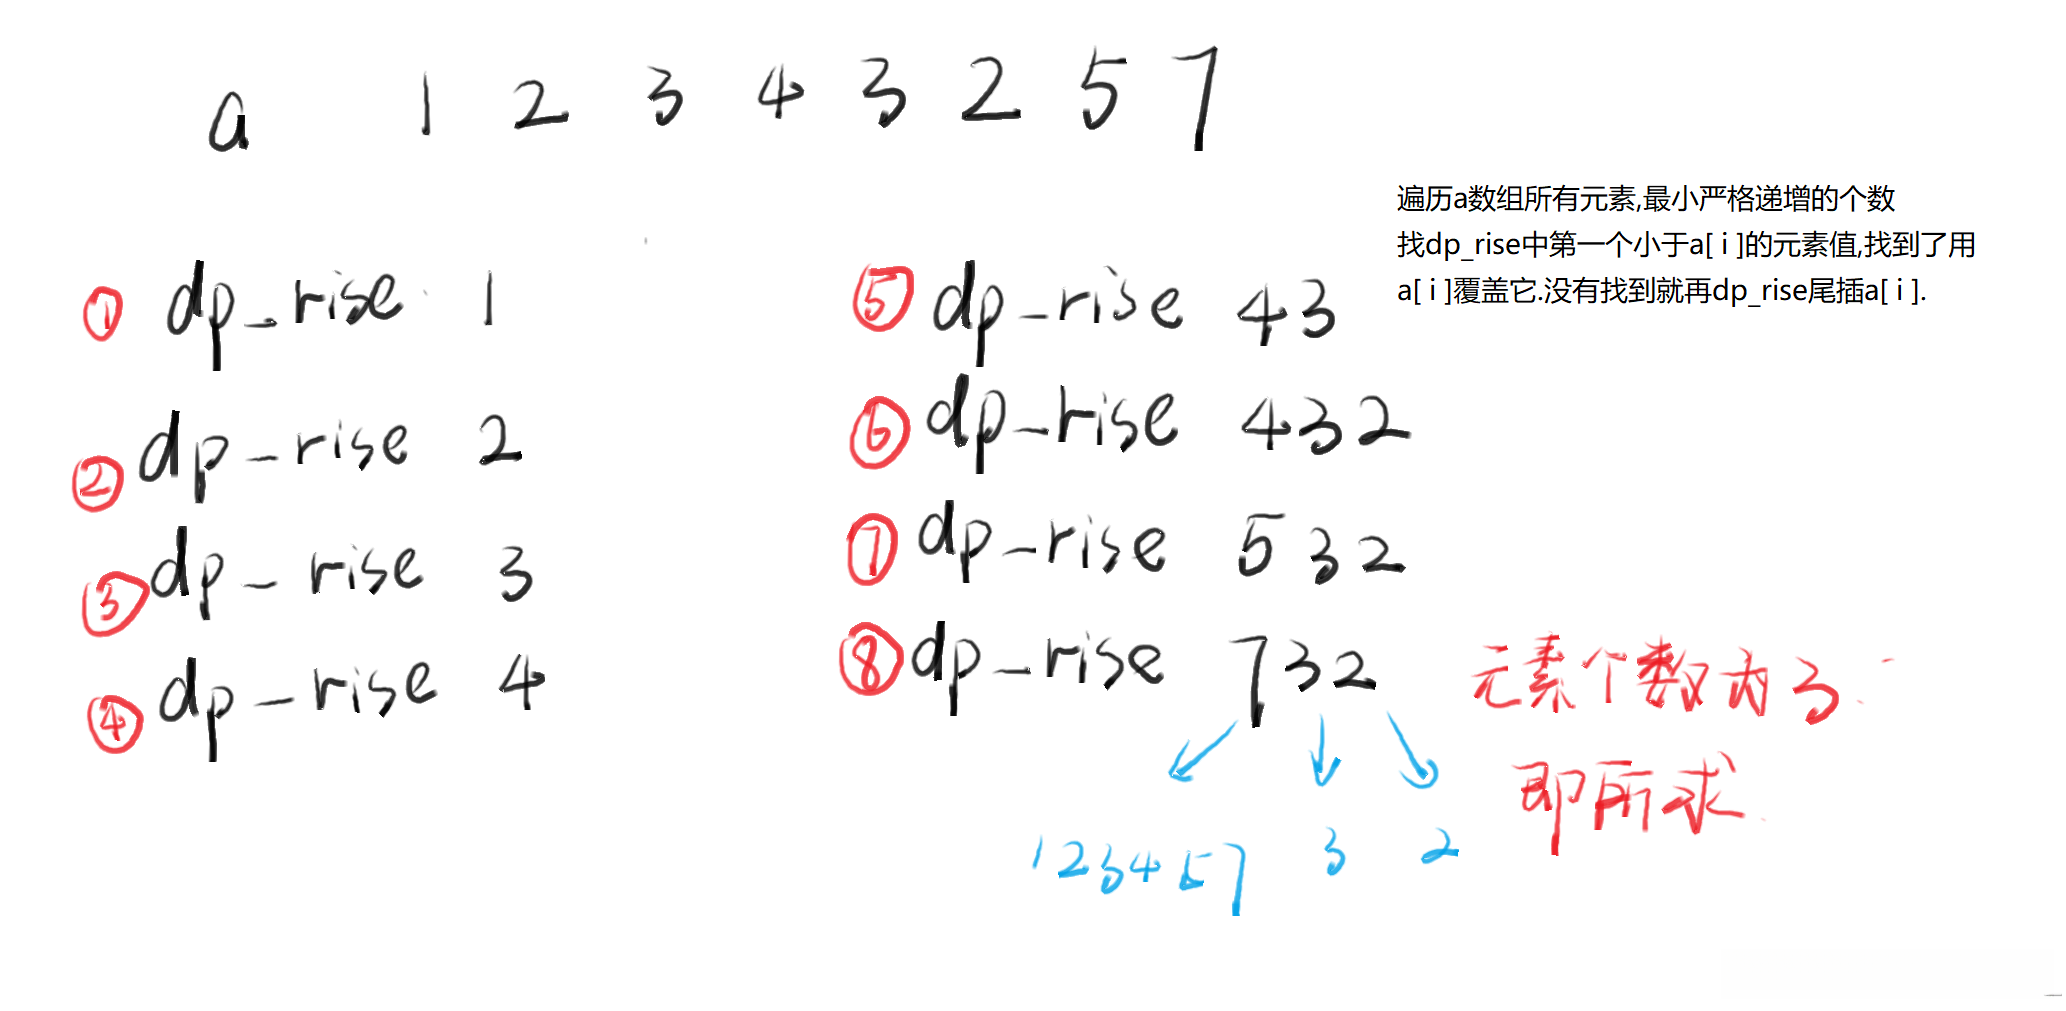 a 1 2 3 4 3 2 5 7
遍历a数组所有元素,最小严格递增的个数
找dp_rise中第一个小于a[ i ]的元素值,找到了用
a[ i ]覆盖它.没有找到就再dp_rise尾插a[ i ].
① dp_rise 1
② dp_rise 2
③ dp_rise 3
④ dp_rise 4
⑤ dp_rise 4 3
⑥ dp_rise 4 3 2
⑦ dp_rise 5 3 2
⑧ dp_rise 7 3 2
元素个数为3.
即所求
1 2 3 4 5 7 3 2